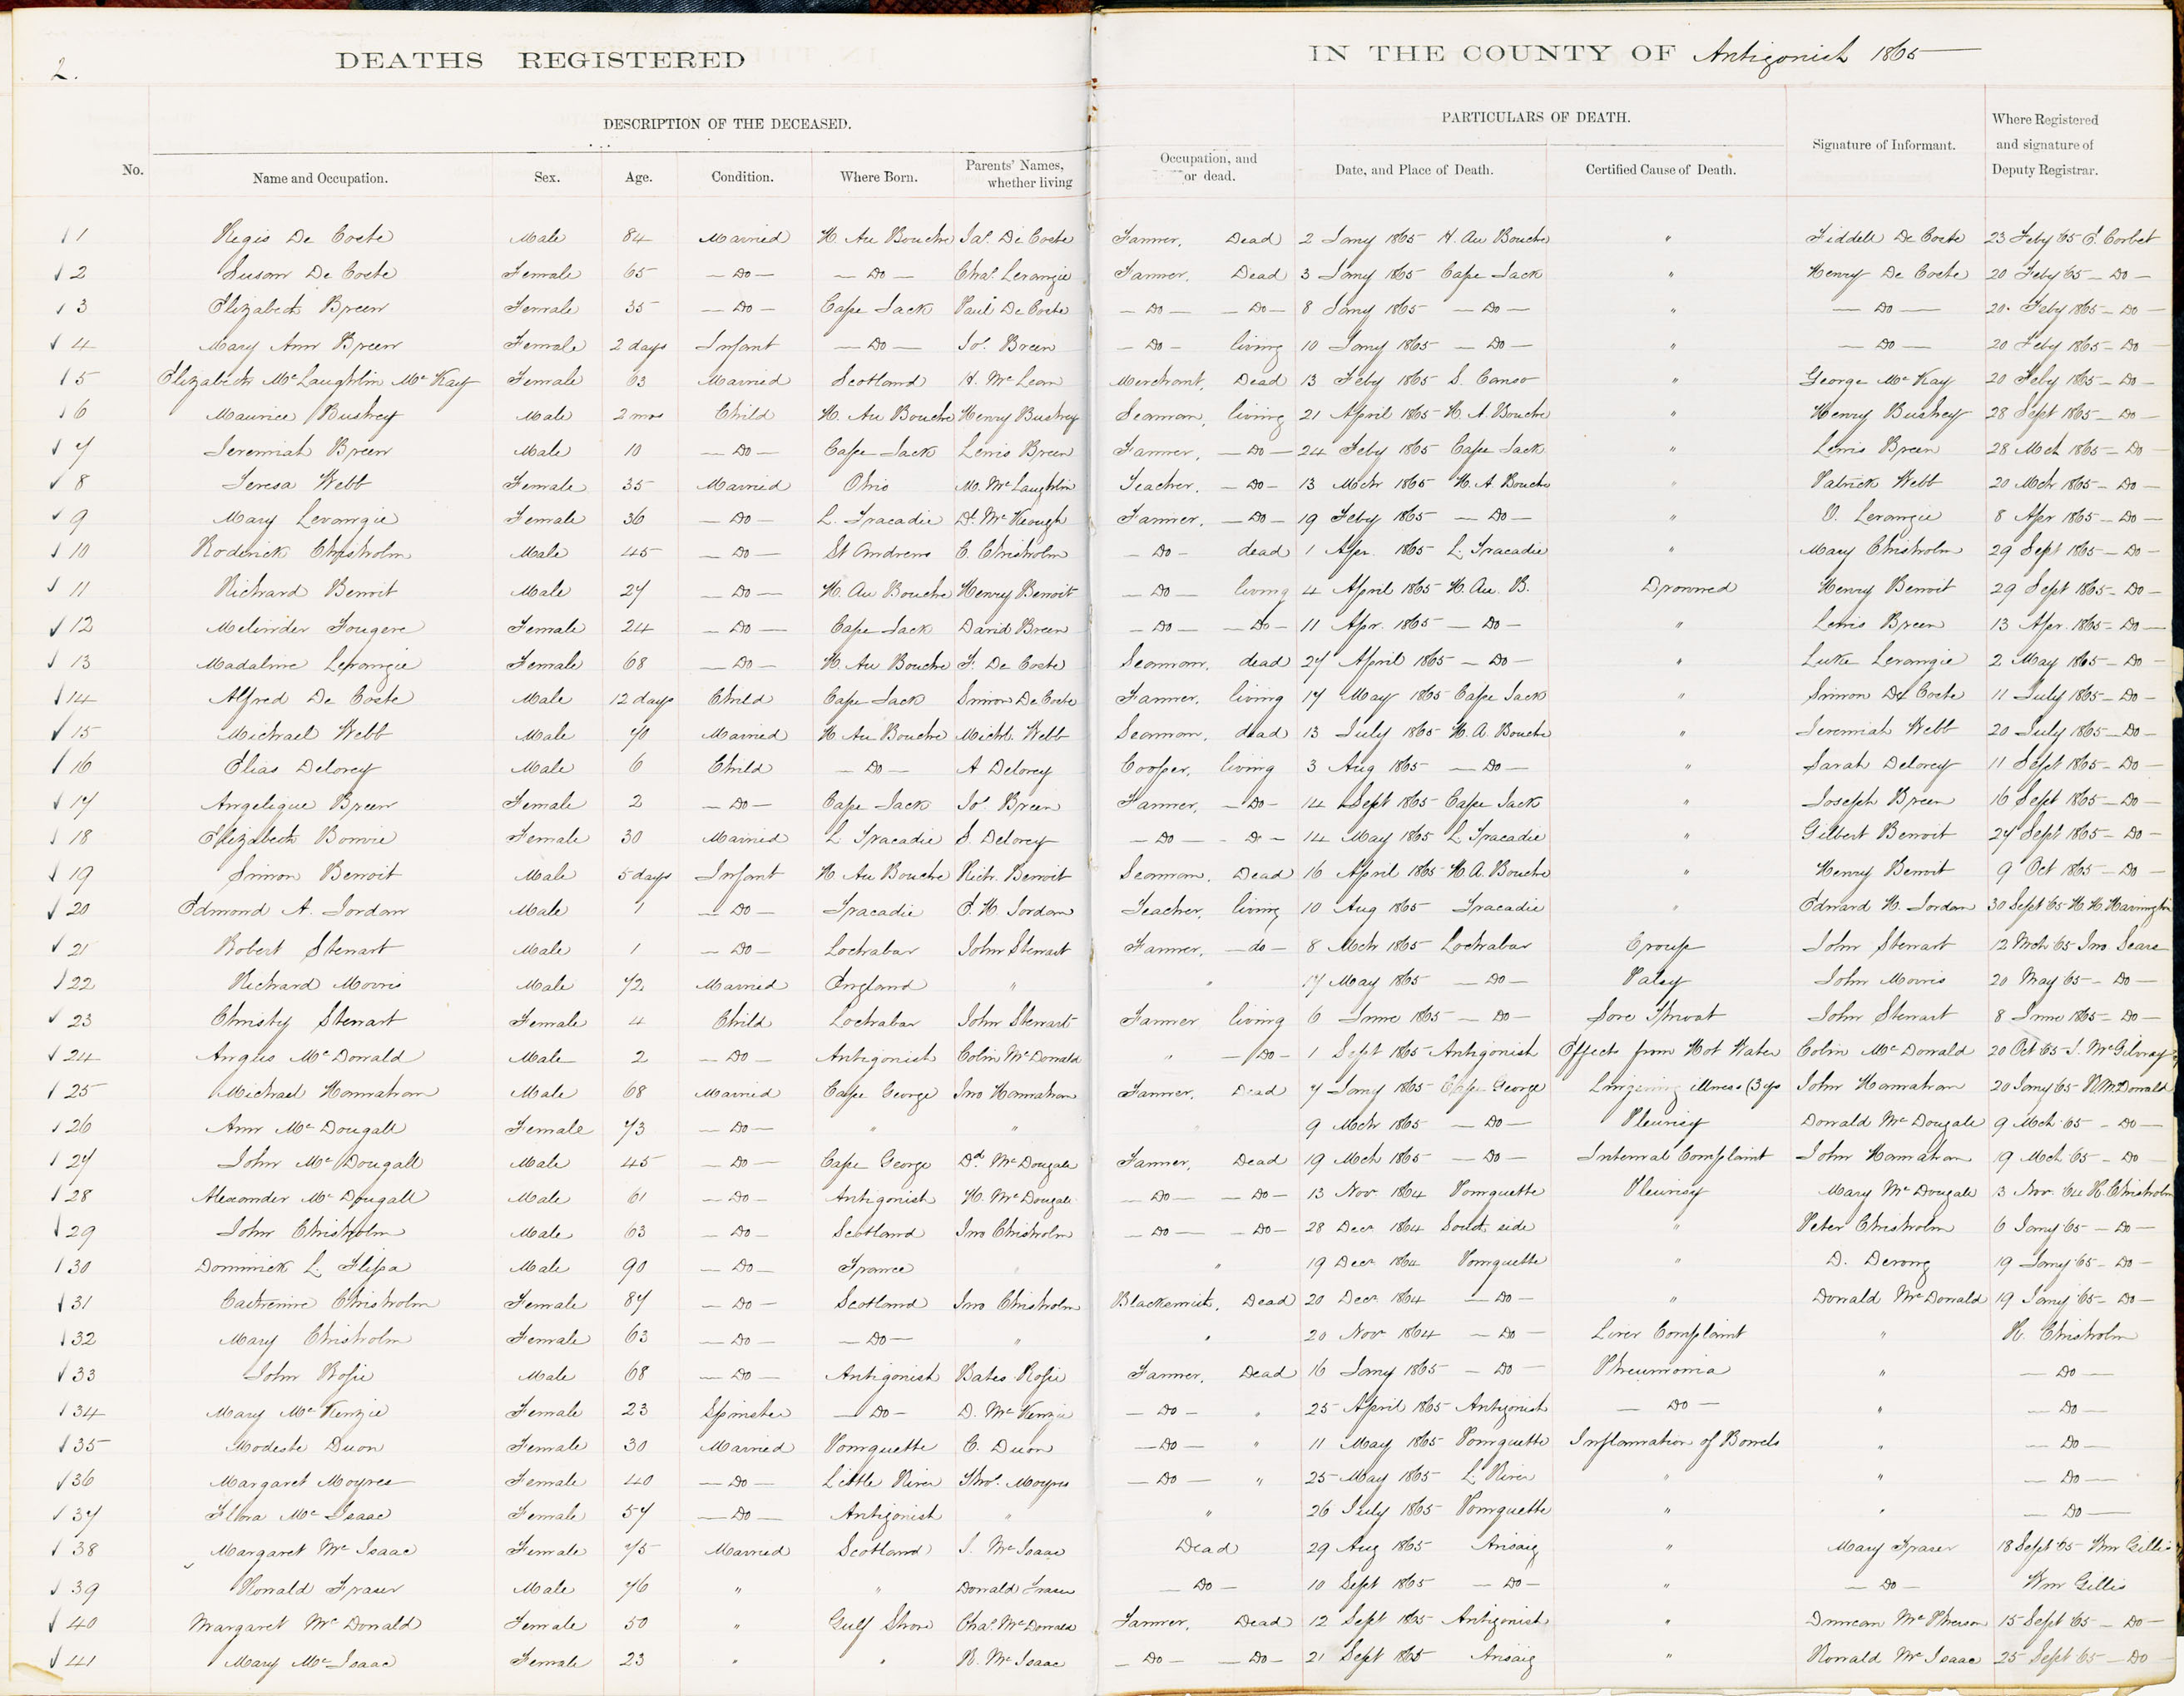 2.
DEATHS REGISTERED IN THE COUNTY OF Antigonish 1865
DESCRIPTION OF THE DECEASED. PARTICULARS OF DEATH.
No. Name and Occupation. Sex. Age. Condition. Where Born. Parents' Names, whether living Occupation, and or dead. Date, and Place of Death. Certified Cause of Death. Signature of Informant. Where Registered and signature of Deputy Registrar.
1 Regis De Coste Male 84 Married H. Au Bouche Jas. De Coste Farmer, Dead 2 Jany 1865 H. Au Bouche " Fiddell De Coste 23 Feby '65 E. Corbet
2 Susan De Coste Female 65 - Do - - Do - Chas. Levangie Farmer, Dead 3 Jany 1865 Cape Jack " Henry De Coste 20 Feby '65 - Do -
3 Elizabeth Breen Female 35 - Do - Cape Jack Paul De Coste - Do - - Do - 8 Jany 1865 - Do - " - Do - 20 Feby 1865 - Do -
4 Mary Ann Breen Female 2 days Infant - Do - Jos. Breen - Do - living 10 Jany 1865 - Do - " - Do - 20 Feby 1865 - Do -
5 Elizabeth McLaughlin McKay Female 63 Married Scotland H. McLean Merchant, Dead 13 Feby 1865 S. Canso " George McKay 20 Feby 1865 - Do -
6 Maurice Bushey Male 2 mos Child H. Au Bouche Henry Bushey Seaman, living 21 April 1865 H A. Bouche " Henry Bushey 28 Sept 1865 - Do -
7 Jeremiah Breen Male 10 - Do - Cape Jack Lewis Breen Farmer, - Do - 24 Feby 1865 Cape Jack " Lewis Breen 28 Mch 1865 - Do -
8 Teresa Webb Female 35 Married Ohio M. McLaughlin Teacher, - Do - 13 Mch 1865 H. A. Bouche " Patrick Webb 20 Mch 1865 - Do -
9 Mary Levangie Female 36 - Do - L. Tracadie D. McKeough Farmer, - Do - 19 Feby 1865 - Do - " Levangie 8 Apr 1865 - Do -
10 Roderick Chisholm Male 45 - Do - St Andrews C. Chisholm - Do - dead 1 Apr. 1865 L. Tracadie " Mary Chisholm 29 Sept 1865 - Do -
11 Richard Benoit Male 27 - Do - H. Au Bouche Henry Benoit - Do - living 4 April 1865 H. Au. B. Drowned Henry Benoit 29 Sept 1865 - Do -
12 Melinder Fougere Female 24 - Do - Cape Jack David Breen - Do - - Do - 11 Apr. 1865 - Do - " Lewis Breen 13 Apr. 1865 - Do -
13 Madaline Levangie Female 68 - Do - H Au Bouche F. De Coste Seaman, dead 27 April 1865 - Do - " Luke Levangie 2 May 1865 - Do -
14 Alfred De Coste Male 12 days Child Cape Jack Simon De Coste Farmer, living 17 May 1865 Cape Jack " Simon De Coste 11 July 1865 - Do -
15 Michael Webb Male 70 Married H Au Bouche Michl. Webb Seaman, dead 13 July 1865 H. A. Bouche " Jeremiah Webb 20 July 1865 - Do -
16 Elias Delorey Male 6 Child - Do - A Delorey Cooper, living 3 Aug 1865 - Do - " Sarah Delorey 11 Sept 1865 - Do -
17 Angelique Breen Female 2 - Do - Cape Jack Jos. Breen Farmer, - Do - 14 Sept 1865 Cape Jack " Joseph Breen 16 Sept 1865 - Do -
18 Elizabeth Bonvie Female 30 Married L Tracadie S. Delorey - Do - - Do - 14 May 1865 L. Tracadie " Gilbert Benoit 27 Sept 1865 - Do -
19 Simon Benoit Male 5 days Infant H Au Bouche Rich. Benoit Seaman, Dead 16 April 1865 H A. Bouche " Henry Benoit 9 Oct 1865 - Do -
20 Edmond A. Jordan Male 1 - Do - Tracadie E. H. Jordan Teacher, living 10 Aug 1865 Tracadie " Edward H. Jordan 30 Sept '65 H. H. Harrington
21 Robert Stewart Male 1 - Do - Lochabar John Stewart Farmer, - do - 8 Mch 1865 Lochabar Croup John Stewart 12 Mch '65 Jno. Sears
22 Richard Morris Male 72 Married England " " 17 May 1865 - Do - Palsy John Morris 20 May '65 - Do -
23 Christy Stewart Female 4 Child Lochabar John Stewart Farmer living 6 June 1865 - Do - Sore Throat John Stewart 8 June 1865 - Do -
24 Angus McDonald Male 2 - Do - Antigonish Colin McDonald " - Do - 1 Sept 1865 Antigonish Effects from Hot Water Colin McDonald 20 Oct '65 J. McGilvray
25 Michael Hannahan Male 68 Married Cape George Jno Hannahan Farmer, Dead 7 Jany 1865 Cape George Lingering illness (3 ys John Hannahan 20 Jany '65 R. McDonald
26 Ann McDougall Female 73 - Do - " " " 9 Mch 1865 - Do - Pleurisy Donald McDougall 9 Mch '65 - Do -
27 John McDougall Male 45 - Do - Cape George Dd. McDougall Farmer, Dead 19 Mch 1865 - Do - Internal Complaint John Hannahan 19 Mch '65 - Do -
28 Alexander McDougall Male 61 - Do - Antigonish H. McDougall - Do - - Do - 13 Nov. 1864 Pomquette Pleurisy Mary McDougall 3 Nov. '64 R. Chisholm
29 John Chisholm Male 63 - Do - Scotland Jno Chisholm - Do - - Do - 28 Decr 1864 South side " Peter Chisholm 6 Jany '65 - Do -
30 Dominick L. Male 90 - Do - France " " 19 Decr 1864 Pomquette " D. 19 Jany '65 - Do -
31 Catherine Chisholm Female 87 - Do - Scotland Jno Chisholm Blacksmith, Dead 20 Decr 1864 - Do - " Donald McDonald 19 Jany '65 - Do -
32 Mary Chisholm Female 63 - Do - - Do - " " 20 Novr 1864 - Do - Liver Complaint " R. Chisholm
33 John Male 68 - Do - Antigonish Bates Farmer, Dead 16 Jany 1865 - Do - Pneumonia " - Do -
34 Mary McKenzie Female 23 Spinster - Do - D. McKenzie - Do - " 25 April 1865 Antigonish - Do - " - Do -
35 Modeste Duon Female 30 Married Pomquette C. Duon - Do - " 11 May 1865 Pomquette Inflamation of Bowels " - Do -
36 Margaret Female 40 - Do - Little River Thos. - Do - " 25 May 1865 L. River " " - Do -
37 Flora McIsaac Female 57 - Do - Antigonish " " 26 July 1865 Pomquette " " - Do -
38 Margaret McIsaac Female 75 Married Scotland J. McIsaac Dead 29 Aug 1865 Arisaig " Mary Fraser 18 Sept '65 Wm Gillis
39 Ronald Fraser Male 76 " " Donald Fraser - Do - 10 Sept 1865 - Do - " - Do - Wm Gillis
40 Margaret McDonald Female 50 " Gulf Shore Chas. McDonald Farmer, Dead 12 Sept 1865 Antigonish " Duncan McPherson 15 Sept '65 - Do -
41 Mary McIsaac Female 23 " " R. McIsaac - Do - - Do - 21 Sept 1865 Arisaig " Ronald McIsaac 25 Sept '65 - Do -